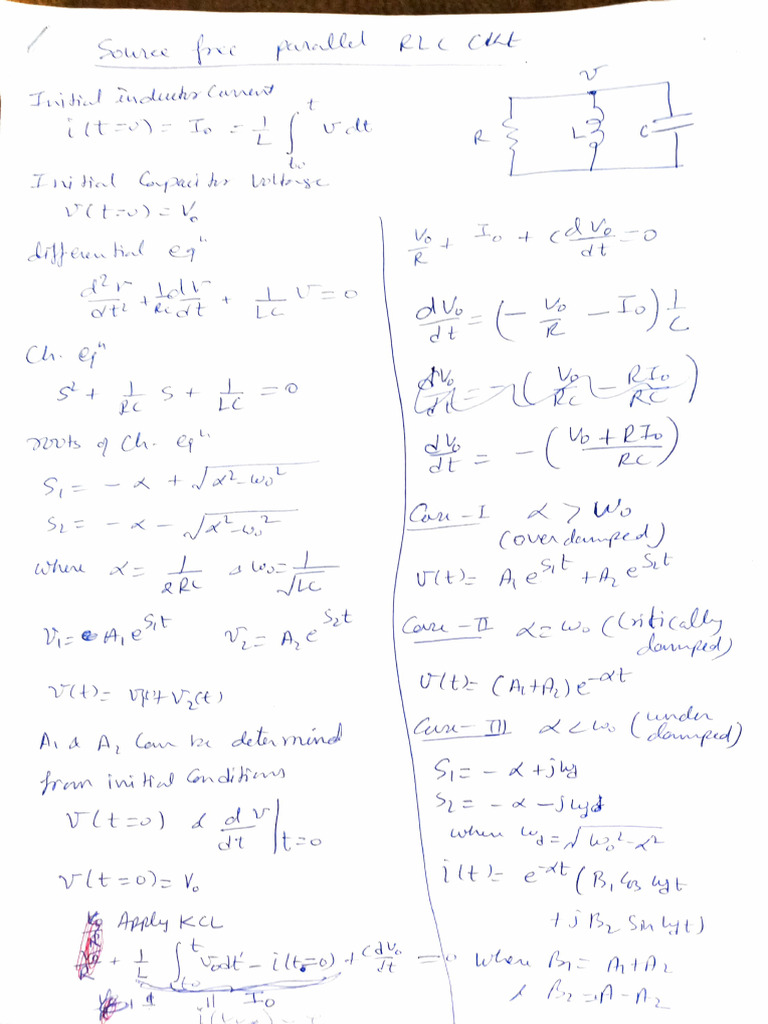 Source free parallel RLC Ckt
Initial inductor Current
i(t=0) = I₀ = 1/L ∫ₜ₀ᵗ v dt
Initial Capacitor Voltage
v(t=0) = V₀
differential eqⁿ
d²v/dt² + 1/RC dv/dt + 1/LC v = 0
Ch. eqⁿ
s² + 1/RC s + 1/LC = 0
roots of Ch. eqⁿ
S₁ = - α + √(α²-ω₀²)
S₂ = - α - √(α²-ω₀²)
where α = 1/2RC & ω₀ = 1/√LC
v₁ = A₁e^S₁t v₂ = A₂e^S₂t
v(t) = v₁(t) + v₂(t)
A₁ & A₂ Can be determind
from initial Conditions
v(t=0) & dv/dt |t=0
v(t=0) = V₀
Apply KCL
+ 1/L ∫ₜ₀ᵗ v₀dt - i(t=0) + C dv₀/dt = 0
I₀
v
R
L
C
V₀/R + I₀ + C dV₀/dt = 0
dV₀/dt = (- V₀/R - I₀) 1/C
dV₀/dt = -(V₀/RC - RI₀/RC)
dV₀/dt = - (V₀ + RI₀/RC)
Case - I α > ω₀
(overdamped)
v(t) = A₁e^S₁t + A₂e^S₂t
Case - II α = ω₀ (Critically
damped)
v(t) = (A₁+A₂) e^-αt
Case - III α < ω₀ (under
damped)
S₁ = - α + jωd
S₂ = - α - jωd
where ωd = √(ω₀² - α²)
i(t) = e^-αt (B₁ Cos ωdt
+ j B₂ Sin ωdt)
where B₁ = A₁ + A₂
& B₂ = A - A₂